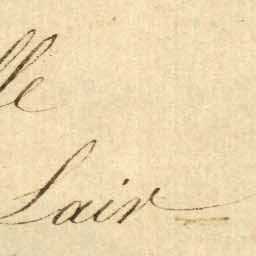 lle
Lair